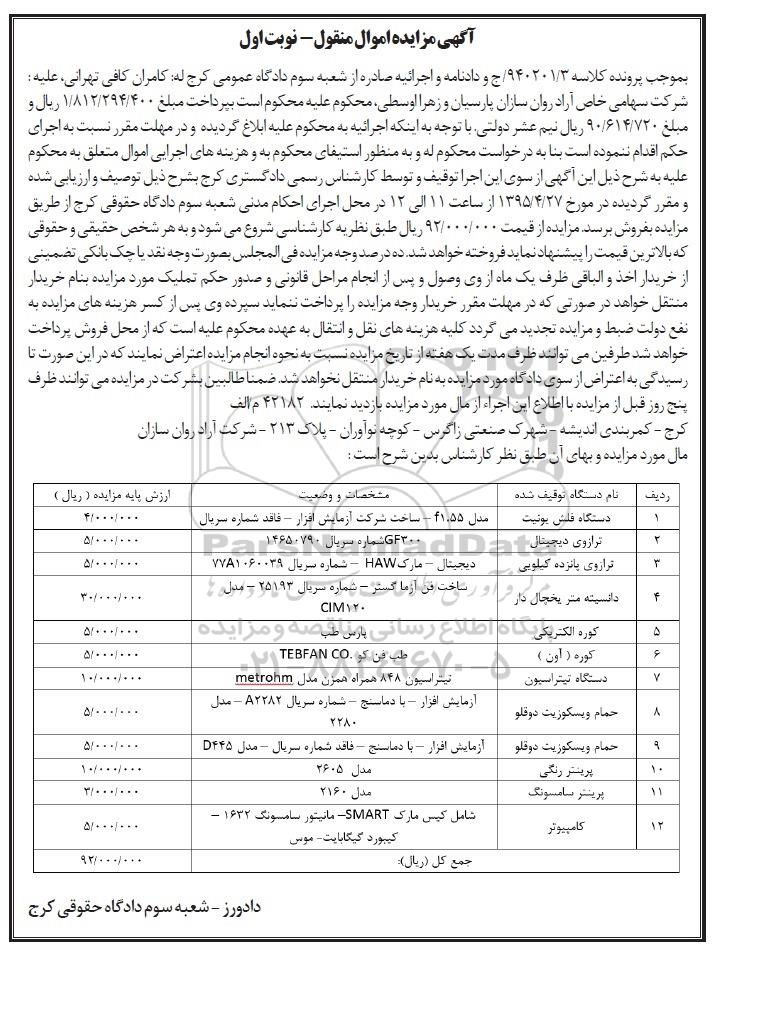 آگهی مزایده اموال منقول – نوبت اول
بموجب پرونده کلاسه ۹۴۰۲۰۱/۳/ج و دادنامه و اجرائیه صادره از شعبه سوم دادگاه عمومی کرج له: کامران کافی تهرانی، علیه :
شرکت سهامی خاص آراد روان سازان پارسیان و زهرا اوسطی، محکوم علیه محکوم است بپرداخت مبلغ ۱/۸۱۲/۲۹۴/۴۰۰ ریال و
مبلغ ۹۰/۶۱۴/۷۲۰ ریال نیم عشر دولتی. با توجه به اینکه اجرائیه به محکوم علیه ابلاغ گردیده و در مهلت مقرر نسبت به اجرای
حکم اقدام ننموده است بنا به درخواست محکوم له و به منظور استیفای محکوم به و هزینه های اجرایی اموال متعلق به محکوم
علیه به شرح ذیل این آگهی از سوی این اجرا توقیف و توسط کارشناس رسمی دادگستری کرج بشرح ذیل توصیف و ارزیابی شده
و مقرر گردیده در مورخ ۱۳۹۵/۴/۲۷ از ساعت ۱۱ الی ۱۲ در محل اجرای احکام مدنی شعبه سوم دادگاه حقوقی کرج از طریق
مزایده بفروش برسد. مزایده از قیمت ۹۲/۰۰۰/۰۰۰ ریال طبق نظریه کارشناسی شروع می شود و به هر شخص حقیقی و حقوقی
که بالاترین قیمت را پیشنهاد نماید فروخته خواهد شد. ده درصد وجه مزایده فی المجلس بصورت وجه نقد یا چک بانکی تضمینی
از خریدار اخذ و الباقی ظرف یک ماه از وی وصول و پس از انجام مراحل قانونی و صدور حکم تملیک مورد مزایده بنام خریدار
منتقل خواهد در صورتی که در مهلت مقرر خریدار وجه مزایده را پرداخت ننماید سپرده وی پس از کسر هزینه های مزایده به
نفع دولت ضبط و مزایده تجدید می گردد کلیه هزینه های نقل و انتقال به عهده محکوم علیه است که از محل فروش پرداخت
خواهد شد طرفین می توانند ظرف مدت یک هفته از تاریخ مزایده نسبت به نحوه انجام مزایده اعتراض نمایند که در این صورت تا
رسیدگی به اعتراض از سوی دادگاه مورد مزایده به نام خریدار منتقل نخواهد شد. ضمنا طالبین بشرکت در مزایده می توانند ظرف
پنج روز قبل از مزایده با اطلاع این اجراء از مال مورد مزایده بازدید نمایند. ۴۲۱۸۲ م/الف
کرج - کمربندی اندیشه - شهرک صنعتی زاگرس - کوچه نوآوران - پلاک ۲۱۳ - شرکت آراد روان سازان
مال مورد مزایده و بهای آن طبق نظر کارشناس بدین شرح است :
ردیف نام دستگاه توقیف شده مشخصات و وضعیت ارزش پایه مزایده ( ریال )
۱ دستگاه فلش یونیت مدل f۱.۵۵ – ساخت شرکت آزمایش افزار – فاقد شماره سریال ۴/۰۰۰/۰۰۰
۲ ترازوی دیجیتال GF۳۰۰شماره سریال ۱۴۶۵۰۷۹۰ ۵/۰۰۰/۰۰۰
۳ ترازوی پانزده کیلویی دیجیتال – مارک HAW – شماره سریال ۷۷A۱۰۶۰۰۳۹ ۵/۰۰۰/۰۰۰
۴ دانسیته متر یخچال دار ساخت فن آزما گستر – شماره سریال ۲۵۱۹۳ – مدل
CIM۱۲۰ ۳۰/۰۰۰/۰۰۰
۵ کوره الکتریکی پارس طب ۵/۰۰۰/۰۰۰
۶ کوره ( آون ) طب فن کو TEBFAN CO. ۵/۰۰۰/۰۰۰
۷ دستگاه تیتراسیون تیتراسیون ۸۴۸ همراه همزن مدل metrohm ۱۰/۰۰۰/۰۰۰
۸ حمام ویسکوزیت دوقلو آزمایش افزار – با دماسنج – شماره سریال A۲۲۸۲ – مدل
۲۲۸۰ ۵/۰۰۰/۰۰۰
۹ حمام ویسکوزیت دوقلو آزمایش افزار – با دماسنج – فاقد شماره سریال – مدل D۴۴۵ ۵/۰۰۰/۰۰۰
۱۰ پرینتر رنگی مدل ۲۶۰۵ ۱۰/۰۰۰/۰۰۰
۱۱ پرینتر سامسونگ مدل ۲۱۶۰ ۳/۰۰۰/۰۰۰
۱۲ کامپیوتر شامل کیس مارک SMART– مانیتور سامسونگ ۱۶۳۲ –
کیبورد گیگابایت- موس ۵/۰۰۰/۰۰۰
جمع کل (ریال): ۹۲/۰۰۰/۰۰۰
دادورز - شعبه سوم دادگاه حقوقی کرج
ParsNamadData
پایگاه اطلاع رسانی مناقصه و مزایده
۰۲۱-۸۸۳۴۹۶۷۰-۵